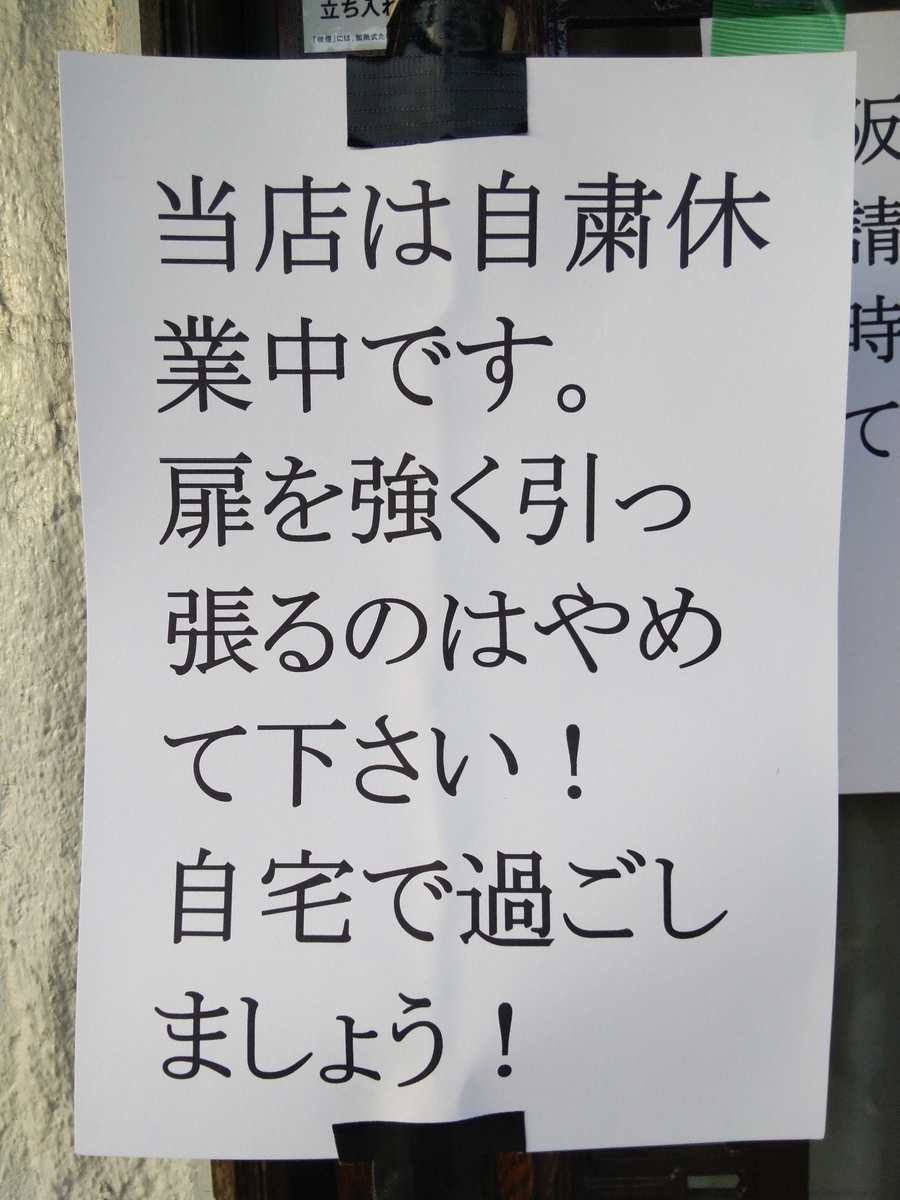 立ち入れ
「喫煙」には、加熱式た
当店は自粛休
業中です。
扉を強く引っ
張るのはやめ
て下さい！
自宅で過ごし
ましょう！
阪
請
時
て